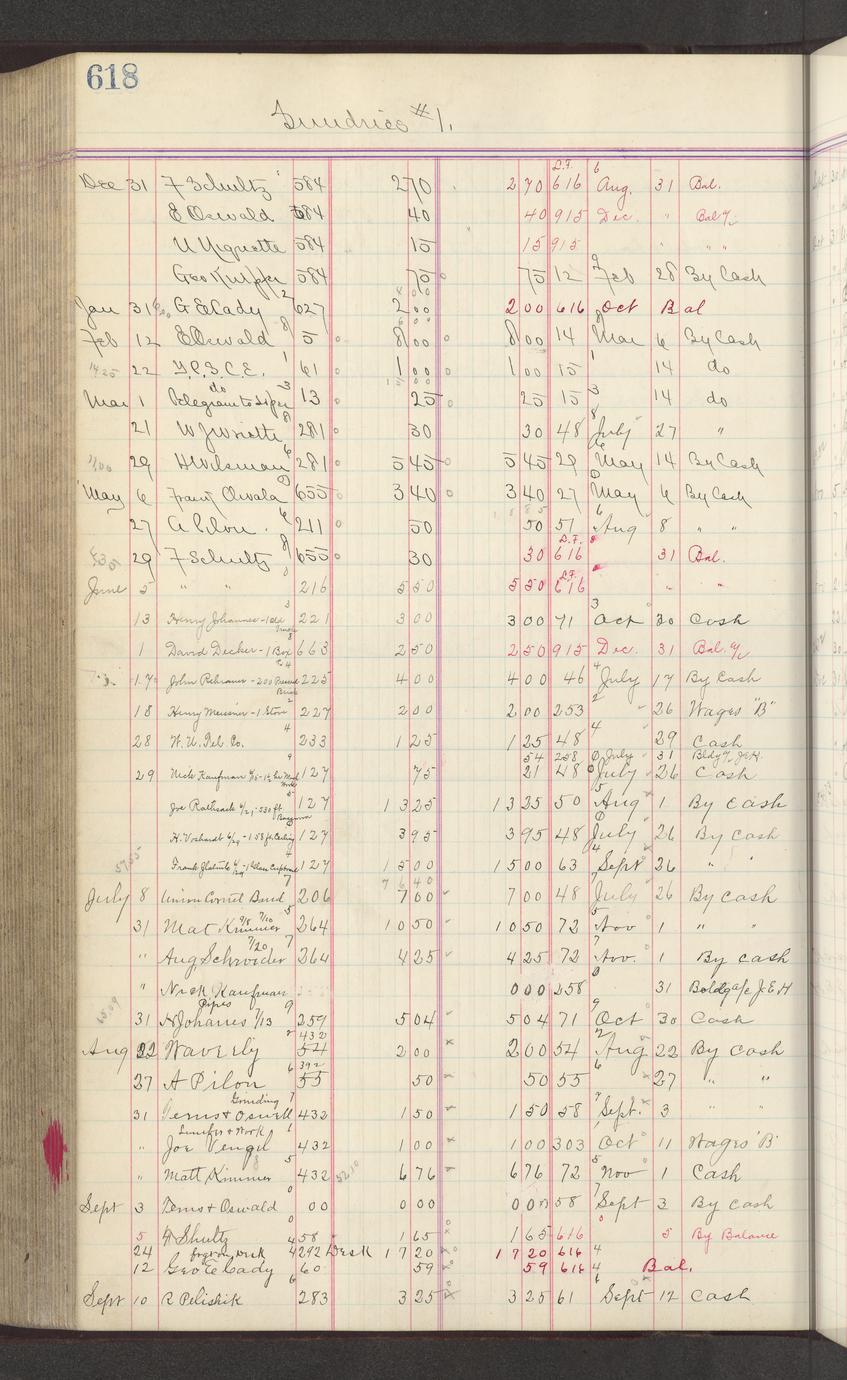 618
Sundries #1.
Dec 31 F Schultz 584 2 70 2 70 L.F. 616 Aug. 31 Bal.
E Oswald 584 40 40 915 Dec. " Bal %
584 15 15 915 " " "
Geo Knipper 584 75 75 12 Feb 28 By Cash
Jan 31 G E Cady 627 2 00 2 00 616 Oct Bal
Feb 12 E Oswald 5 8 00 8 00 14 Mar 6 By Cash
22 Y.P.S.C.E. 61 1 00 1 00 15 14 do
Mar 1 do 13 25 25 15 14 do
21 281 30 30 48 July 27 "
29 281 5 45 5 45 29 May 14 By Cash
May 6 655 3 40 3 40 27 May 6 By Cash
27 A Pilon. 211 50 50 51 Aug 8 " "
29 F Schultz 655 30 30 L.F. 616 31 Bal.
June 5 " " 216 5 50 5 50 L.F. 616 " "
13 Henry Johannes - 1 old 221 3 00 3 00 71 Oct 30 Cash
1 David Decker - 1 Box 663 2 50 2 50 915 Dec. 31 Bal. %
17 John 225 4 00 4 00 46 July 17 By Cash
18 Henry Meissner - 1 Stove 227 2 00 2 00 253 " 26 Wages "B"
28 W. U. Tel. Co. 233 1 25 1 25 48 29 Cash
54 258 July 31 Bldg % J.E.H.
29 Nick Kaufman 127 75 21 48 July 26 Cash
Joe 127 13 25 13 25 50 Aug 1 By Cash
H. Voshardt 6/29 - 158 ft. Ceiling 127 3 95 3 95 48 July 26 By Cash
Frank 127 15 00 15 00 63 Sept 26 " "
July 8 Union Cornet Band 206 7 00 7 00 48 July 26 By Cash
31 Mat Kimmer 264 10 50 10 50 72 Nov 1 " "
" Aug Schroider 7/20 264 4 25 4 25 72 Nov. 1 By Cash
" Nick Kaufman 0 00 258 31 J.E.H
Pipes
31 H Johanes 7/13 259 5 04 5 04 71 Oct 30 Cash
432
Aug 22 Waverly 54 2 00 2 00 54 Aug 22 By Cash
392
27 A Pilon 55 50 50 55 " 27 " "
Grinding
31 Tems & Oswell 432 1 50 1 50 58 Sept. 3 " "
Lumber & Work
" Joe Vengel 432 1 00 1 00 303 Oct 11 Wages "B"
" Matt Kimmer 432 6 76 6 76 72 Nov 1 Cash
Sept 3 Tems & Oswald 00 0 00 0 00 58 Sept 3 By Cash
5 F Shultz 458 1 65 1 65 616 5 By Balance
24 429 Desk 17 20 17 20 616
12 Geo E Cady 60 59 59 616 Bal.
Sept 10 R Peliskik 283 3 25 3 25 61 Sept 12 Cash